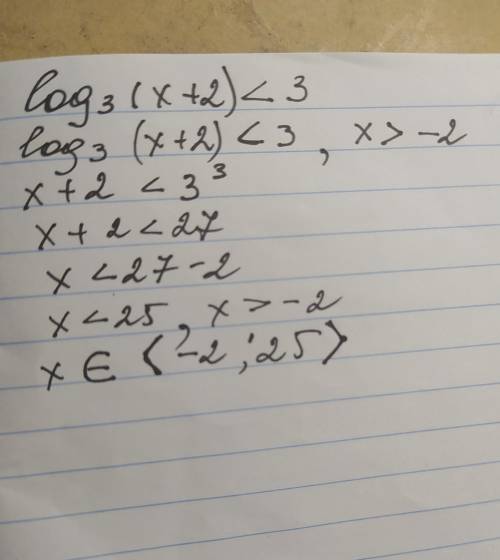 log₃ (x+2) < 3
log₃ (x+2) < 3 , x > -2
x + 2 < 3³
x + 2 < 27
x < 27 - 2
x < 25 , x > -2
x ∈ ⟨-2 ; 25⟩